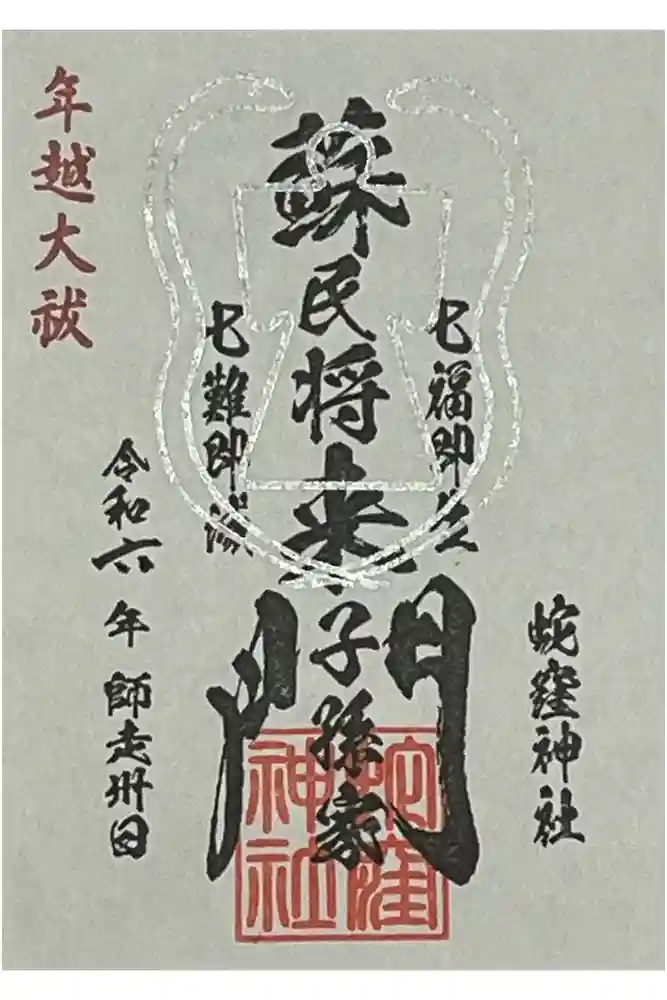 年越大祓
蛇窪神社
七福即生
蘇民将来子孫家門
七難即滅
令和六年師走卅日
蛇窪神社